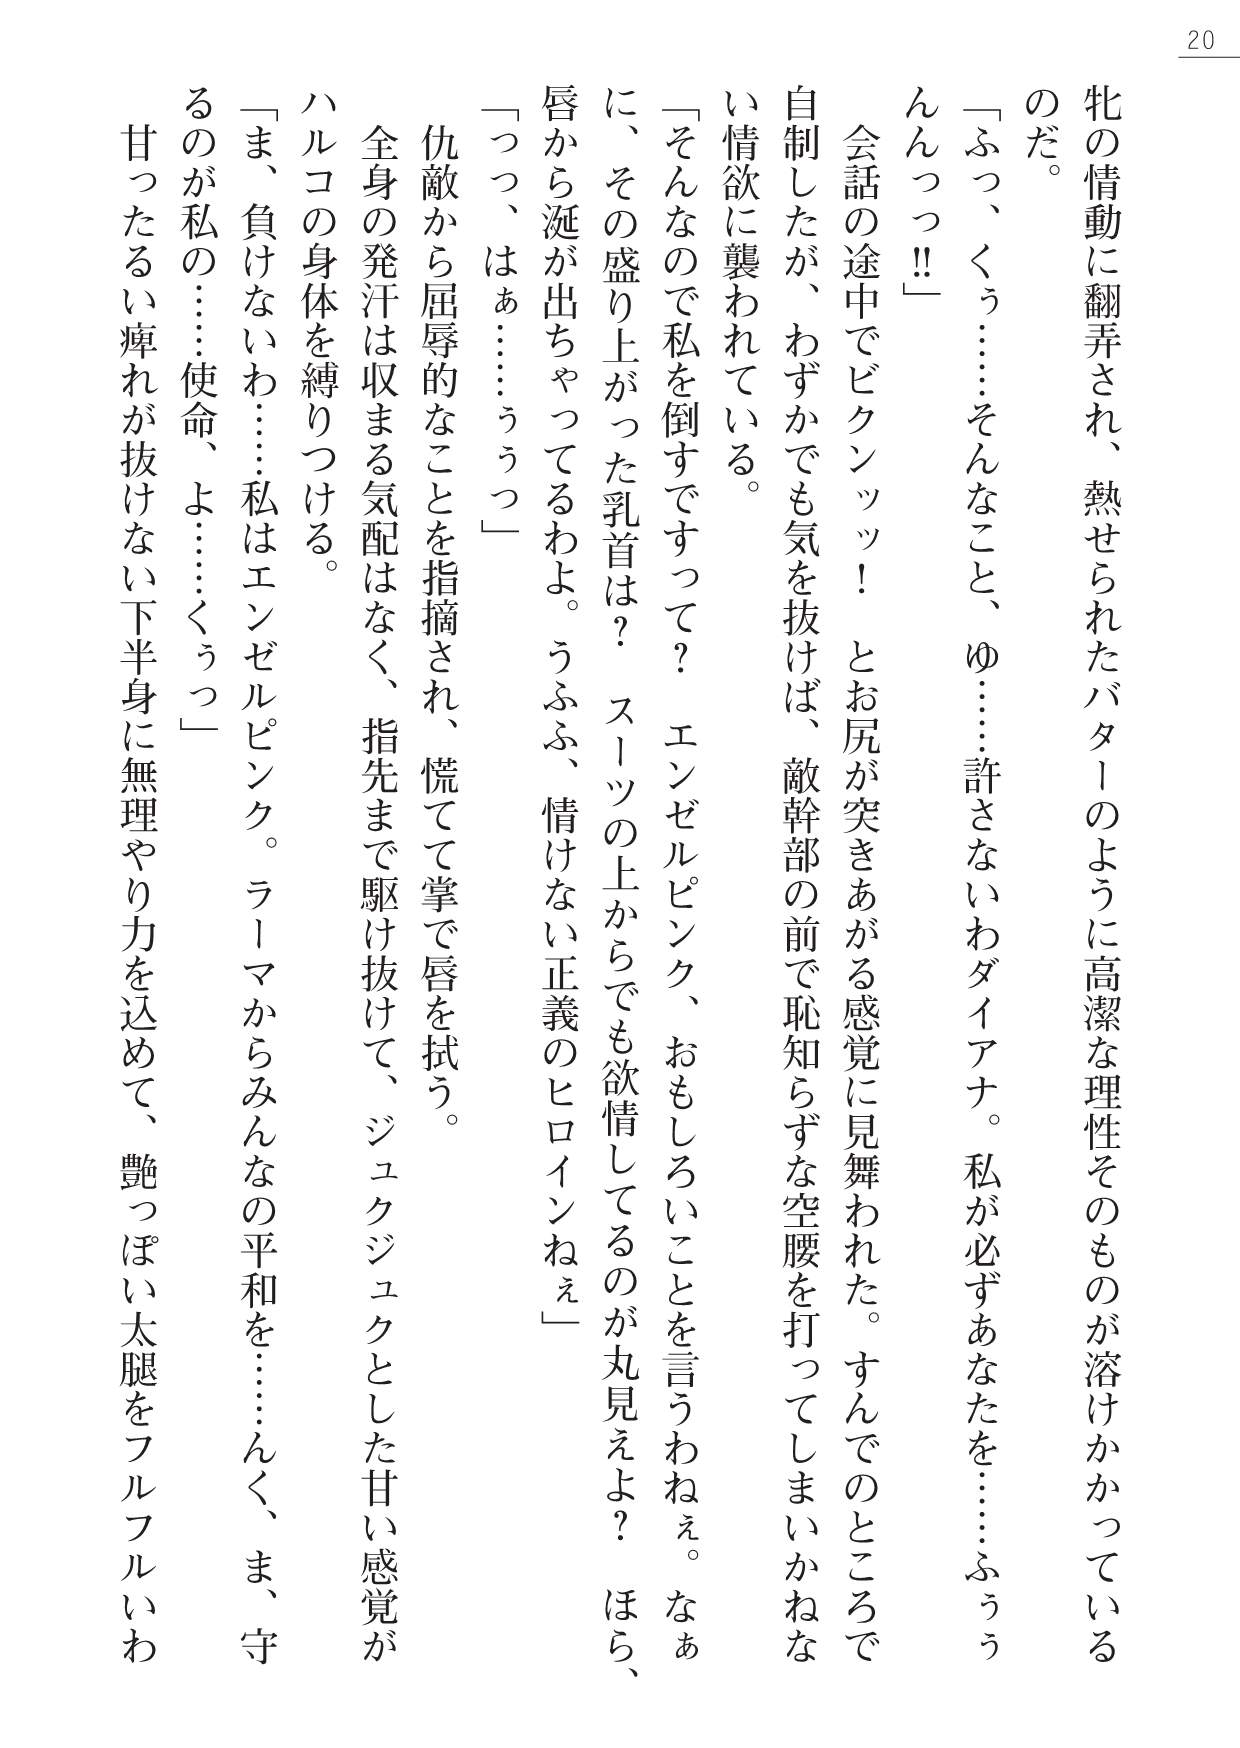 20
牝の情動に翻弄され、熱せられたバターのように高潔な理性そのものが溶けかかっている
のだ。
「ふっ、くぅ……そんなこと、ゆ……許さないわダイアナ。私が必ずあなたを……ふぅぅ
んんっっ‼」
　会話の途中でビクンッッ！　とお尻が突きあがる感覚に見舞われた。すんでのところで
自制したが、わずかでも気を抜けば、敵幹部の前で恥知らずな空腰を打ってしまいかねな
い情欲に襲われている。
「そんなので私を倒すですって？　エンゼルピンク、おもしろいことを言うわねぇ。なぁ
に、その盛り上がった乳首は？　スーツの上からでも欲情してるのが丸見えよ？　ほら、
唇から涎が出ちゃってるわよ。うふふ、情けない正義のヒロインねぇ」
「っっ、はぁ……ぅぅっ」
　仇敵から屈辱的なことを指摘され、慌てて掌で唇を拭う。
　全身の発汗は収まる気配はなく、指先まで駆け抜けて、ジュクジュクとした甘い感覚が
ハルコの身体を縛りつける。
「ま、負けないわ……私はエンゼルピンク。ラーマからみんなの平和を……んく、ま、守
るのが私の……使命、よ……くぅっ」
　甘ったるい痺れが抜けない下半身に無理やり力を込めて、艶っぽい太腿をフルフルいわ